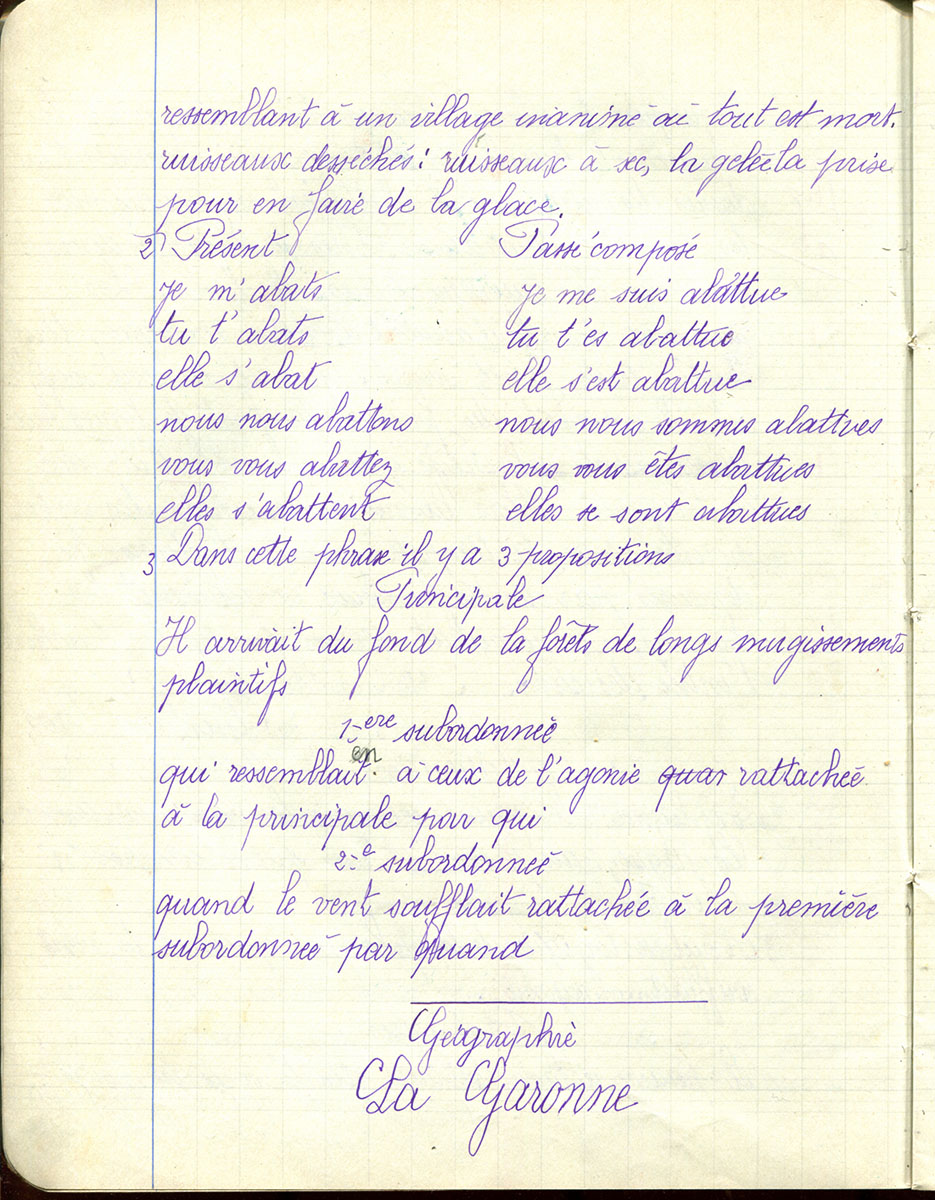 ressemblant à un village inanimé où tout est mort.
ruisseaux desséchés : ruisseaux à sec, la gelée la prise
pour en faire de la glace.
2) Présent Passé composé
je m'abats je me suis abattue
tu t'abats tu t'es abattue
elle s'abat elle s'est abattue
nous nous abattons nous nous sommes abattues
vous vous abattez vous vous êtes abattues
elles s'abattent elles se sont abattues
3 Dans cette phrase il y a 3 propositions
Principale
Il arrivait du fond de la forêts de longs mugissements
plaintifs
1-ere subordonneé
en
qui ressemblait à ceux de l'agonie quar rattacheé
à la principale par qui
2-e subordonneé
quand le vent soufflait rattachée à la première
subordonneé par Quand
Geographie
La Garonne